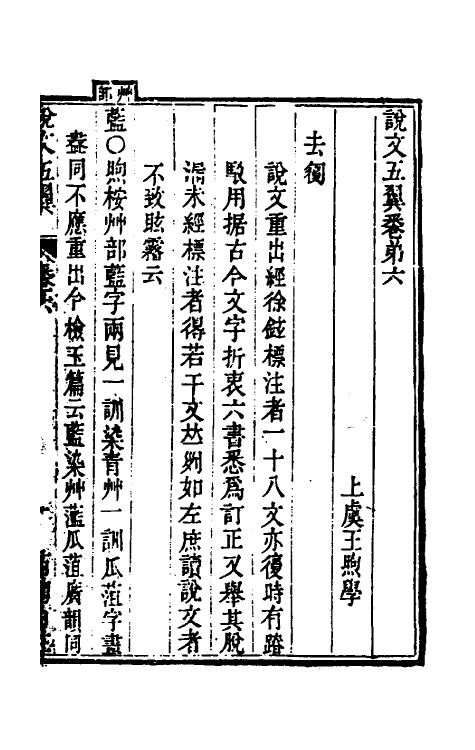 說文五翼卷弟六
上虞王煦學
去複
說文重出經徐鉉標注者一十八文亦復時有踳
駮用据古今文字折衷六書悉爲訂正又舉其脫
漏未經標注者得若干文竝列如左庶讀說文者
不致眩霧云
艸部
藍〇煦桉艸部藍字兩見一訓染青艸一訓瓜菹字畫
盡同不應重出今檢玉篇云藍染艸䕞瓜菹廣韻同
說文五翼